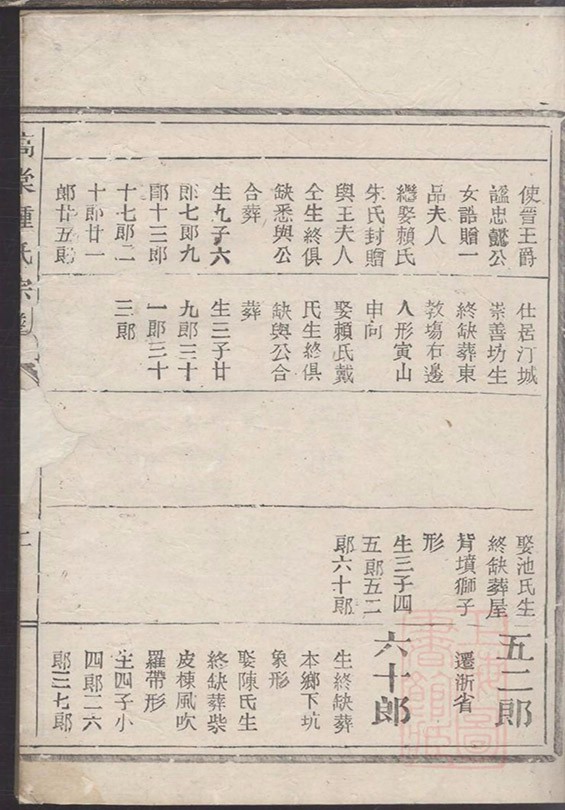 使晉王爵
諡忠懿公
女誥贈一
品夫人
繼娶賴氏
朱氏封贈
與王夫人
仝生終俱
缺悉與公
合葬
生九子六
郎七郎九
郎十三郎
十七郎二
十郎廿一
郎廿五郎
仕居汀城
崇善坊生
終缺葬東
教塲右邊
人形寅山
申向
娶賴氏戴
氏生終俱
缺與公合
葬
生三子廿
九郎三十
一郎三十
三郎
娶池氏生
終缺葬屋
背墳獅子
形
生三子四
五郎五二
郎六十郎
五二郎
遷浙省
六十郎
生終缺葬
本鄉下坑
象形
娶陳氏生
終缺葬柴
皮棟風吹
羅帶形
生四子小
四郎二六
郎三七郎
鍾氏宗譜
二